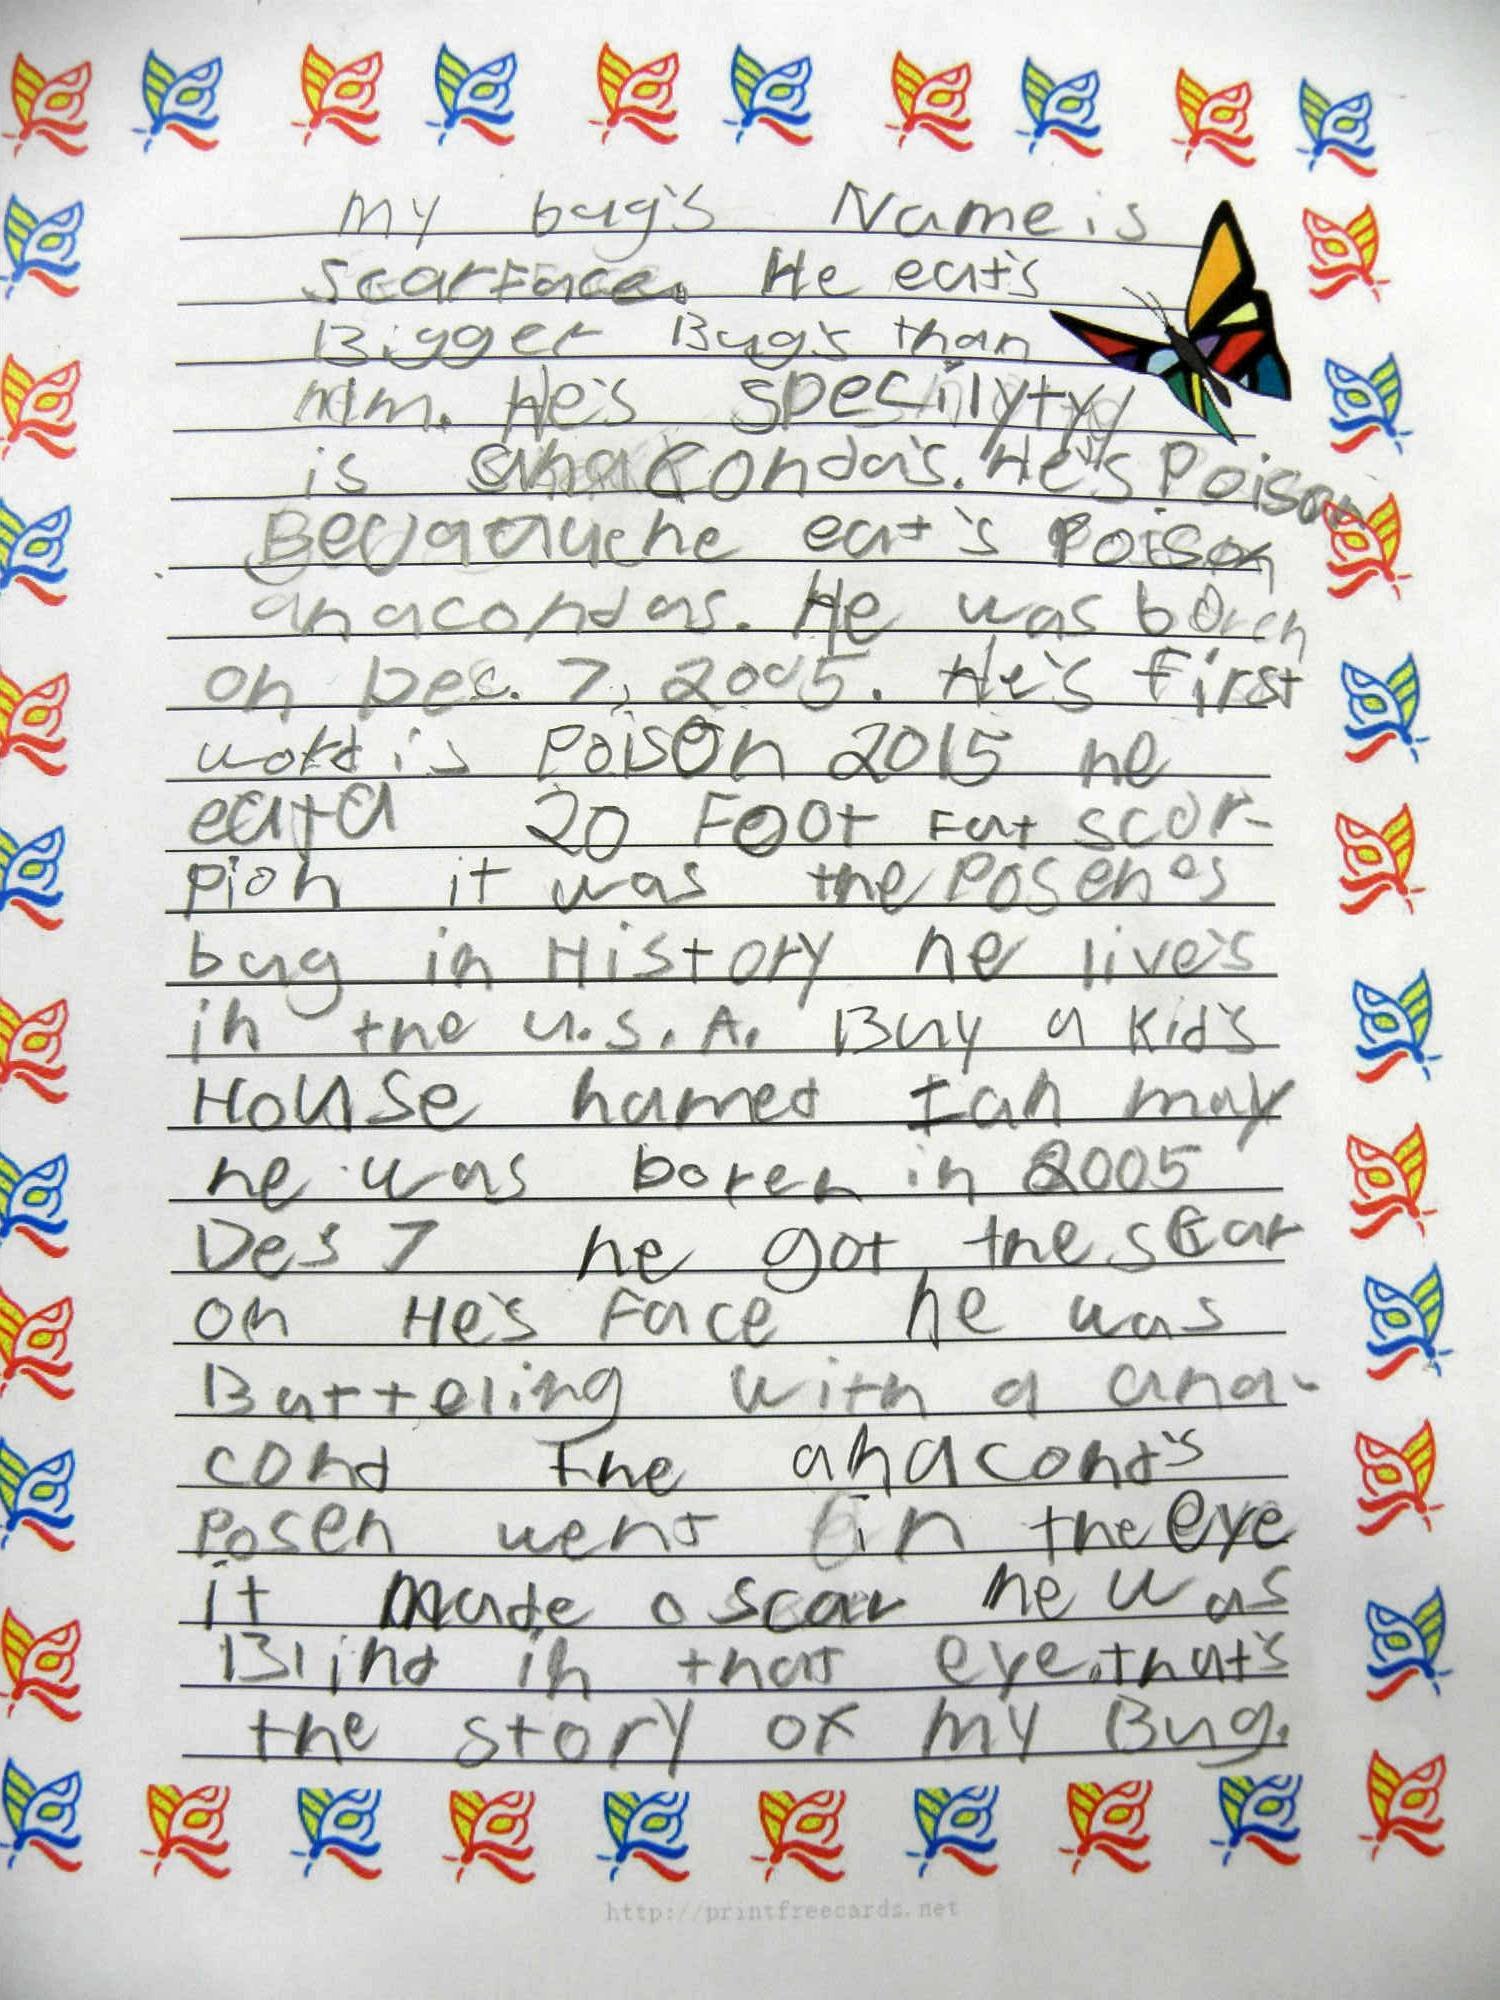 My bug's Name is
scarface. He eat's
Bigger Bug's than
him. He's specilytyy
is anacondas's. He's Poison
he eat's Poison
anacondas. He was born
on Dec. 7, 2005. He's first
word is Poison 2015 he
eat a 20 Foot Fat scor-
pion it was the Posenes
bug in History he live's
in the U.S.A. Buy a Kid's
House named Ian may
he was boren in 2005
Des 7 he got the scar
on He's Face he was
Batteling with a ana-
cond the anacond's
Posen went in the eye
it made a scar he was
Blind in that eye. that's
the story of my Bug.
http://printfreecards.net